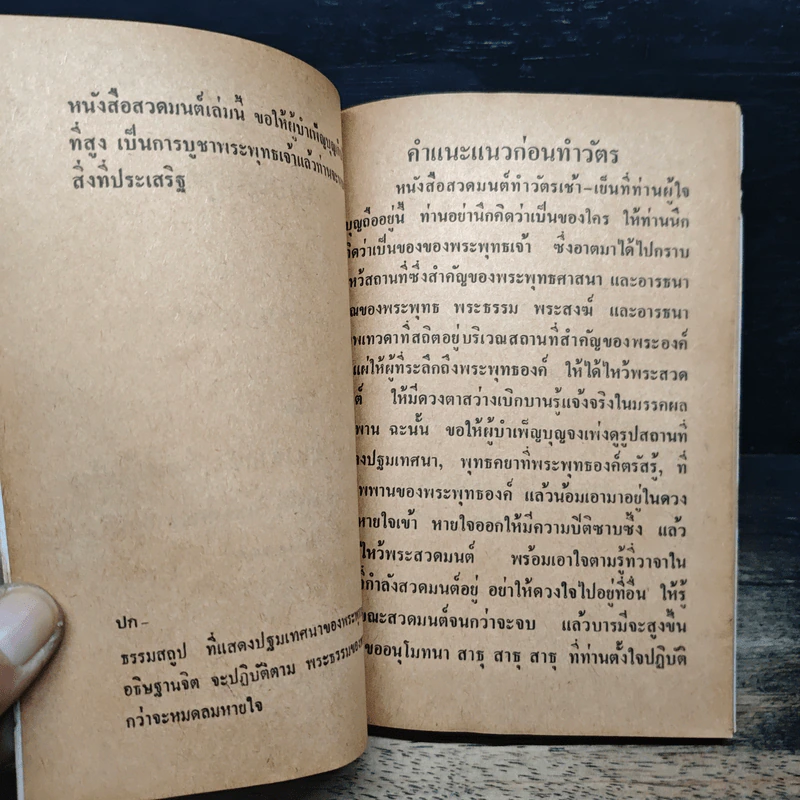 หนังสือสวดมนต์เล่มนี้ ขอให้ผู้บำเพ็ญบุญ
ที่สูง เป็นการบูชาพระพุทธเจ้าแล้วท่านจะ
สิ่งที่ประเสริฐ
ปก–
ธรรมสถูป ที่แสดงปฐมเทศนาของพระ
อธิษฐานจิต จะปฏิบัติตาม พระธรรมของ
กว่าจะหมดลมหายใจ
คำแนะแนวก่อนทำวัตร
หนังสือสวดมนต์ทำวัตรเช้า–เย็นที่ท่านผู้ใจ
บุญถืออยู่นี้ ท่านอย่านึกคิดว่าเป็นของใคร ให้ท่านนึก
คิดว่าเป็นของของพระพุทธเจ้า ซึ่งอาตมาได้ไปกราบ
ไหว้สถานที่ซึ่งสำคัญของพระพุทธศาสนา และอารธนา
ของพระพุทธ พระธรรม พระสงฆ์ และอารธนา
เทวดาที่สถิตอยู่บริเวณสถานที่สำคัญของพระองค์
แผ่ให้ผู้ที่ระลึกถึงพระพุทธองค์ ให้ได้ไหว้พระสวด
ให้มีดวงตาสว่างเบิกบานรู้แจ้งจริงในมรรคผล
พาน ฉะนั้น ขอให้ผู้บำเพ็ญบุญจงเพ่งดูรูปสถานที่
ปฐมเทศนา, พุทธคยาที่พระพุทธองค์ตรัสรู้, ที่
พพานของพระพุทธองค์ แล้วน้อมเอามาอยู่ในดวง
หายใจเข้า หายใจออกให้มีความปีติซาบซึ้ง แล้ว
ไหว้พระสวดมนต์ พร้อมเอาใจตามรู้ที่วาจาใน
ที่กำลังสวดมนต์อยู่ อย่าให้ดวงใจไปอยู่ที่อื่น ให้รู้
ขณะสวดมนต์จนกว่าจะจบ แล้วบารมีจะสูงขึ้น
ขออนุโมทนา สาธุ สาธุ สาธุ ที่ท่านตั้งใจปฏิบัติ